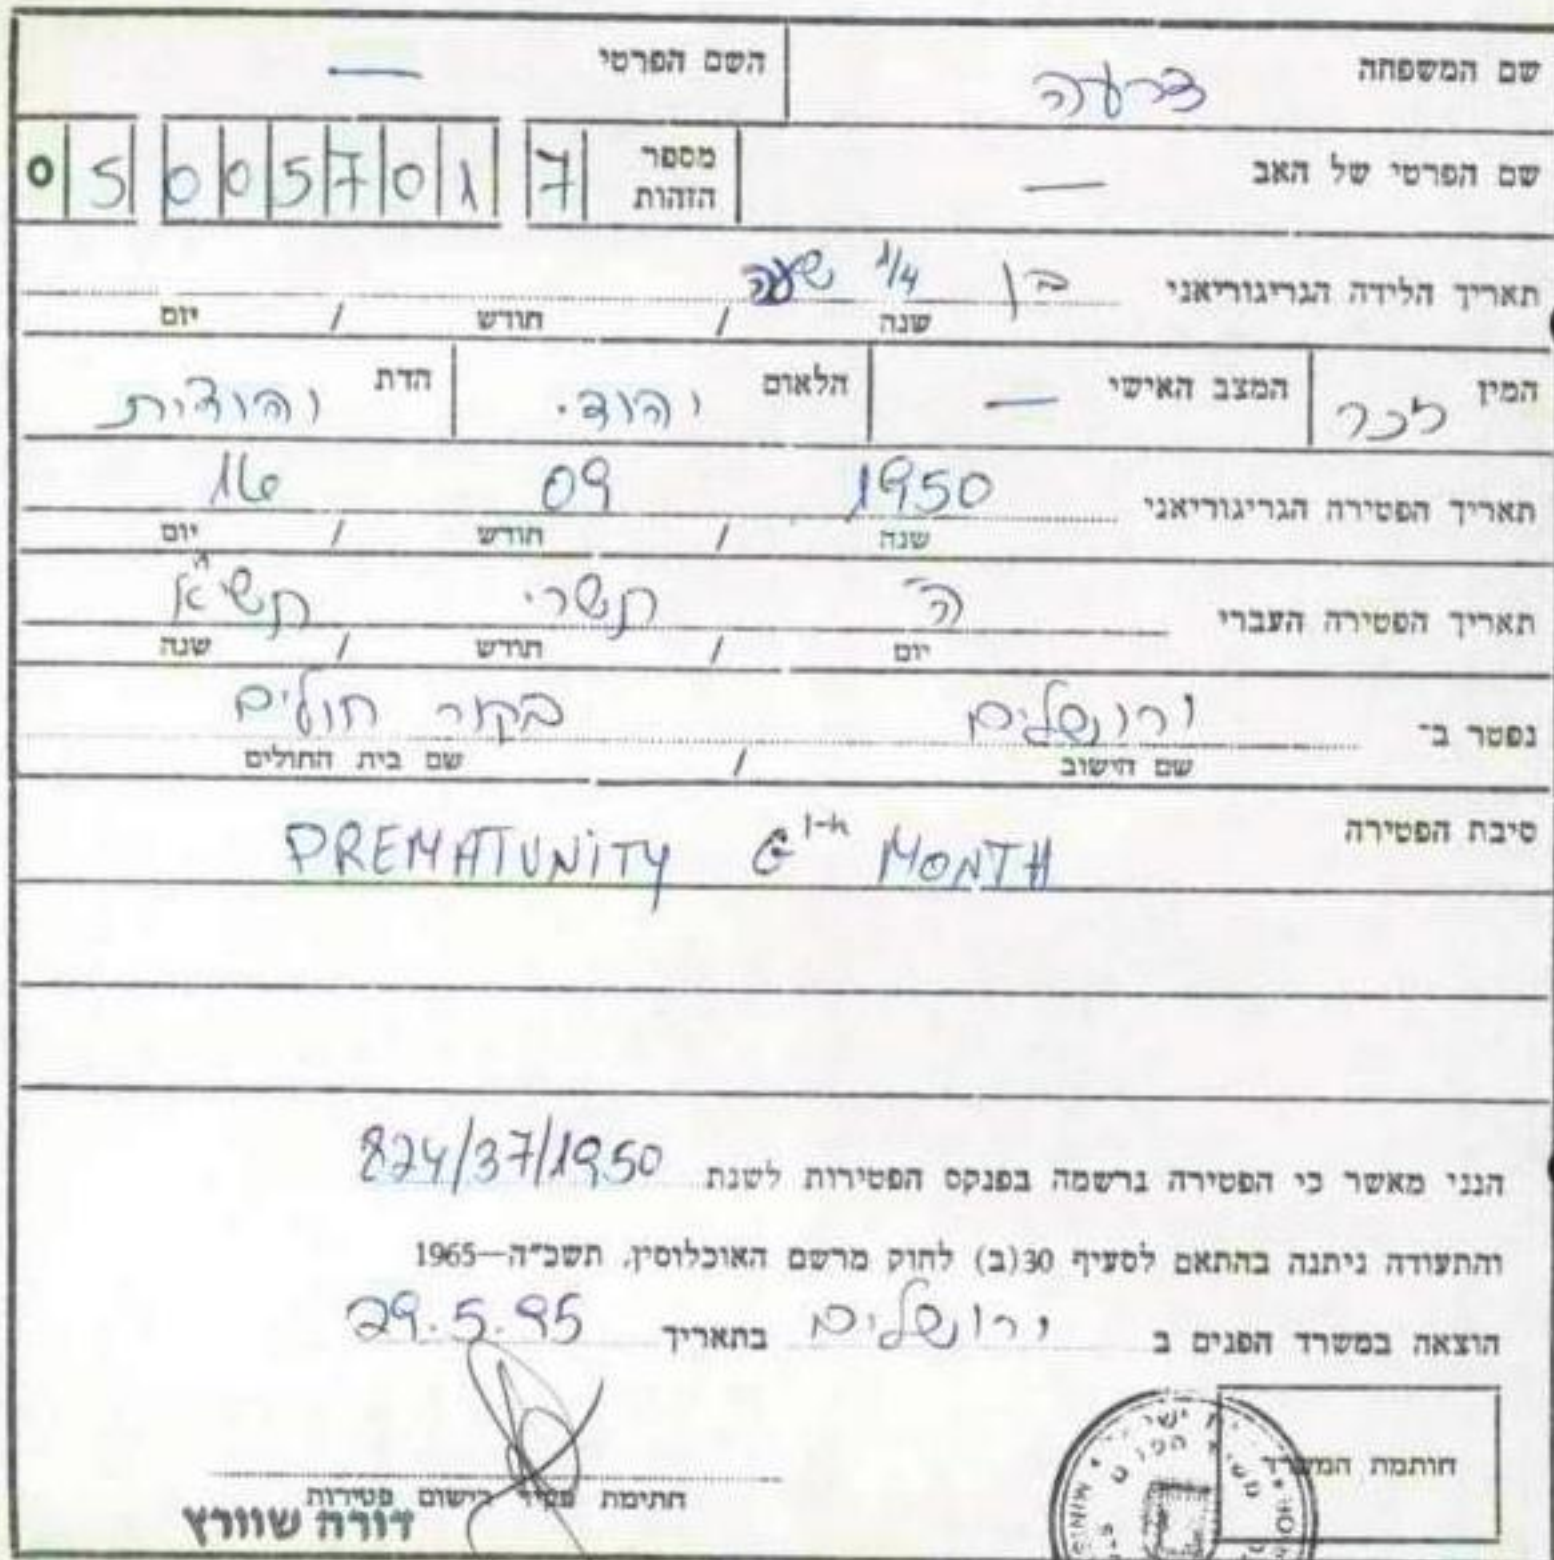 שם המשפחה צרעה השם הפרטי —
שם הפרטי של האב — מספר הזהות 0 5 0 0 5 7 0 1 7
תאריך הלידה הגריגוריאני בן 1/4 שעה
שנה / חודש / יום
המין זכר המצב האישי — הלאום יהודי הדת יהודית
תאריך הפטירה הגריגוריאני 1950 09 16
שנה / חודש / יום
תאריך הפטירה העברי ה' תשרי תשי"א
יום / חודש / שנה
נפטר ב־ ירושלים בקור חולים
שם הישוב / שם בית החולים
סיבת הפטירה
PREMATUNITY 6TH MONTH
הנני מאשר כי הפטירה נרשמה בפנקס הפטירות לשנת 824/37/1950
והתעודה ניתנה בהתאם לסעיף 30(ב) לחוק מרשם האוכלוסין, תשכ"ה—1965
הוצאה במשרד הפנים ב ירושלים בתאריך 29.5.95
חותמת המשרד
חתימת פקיד רישום פטירות
דורה שוורץ